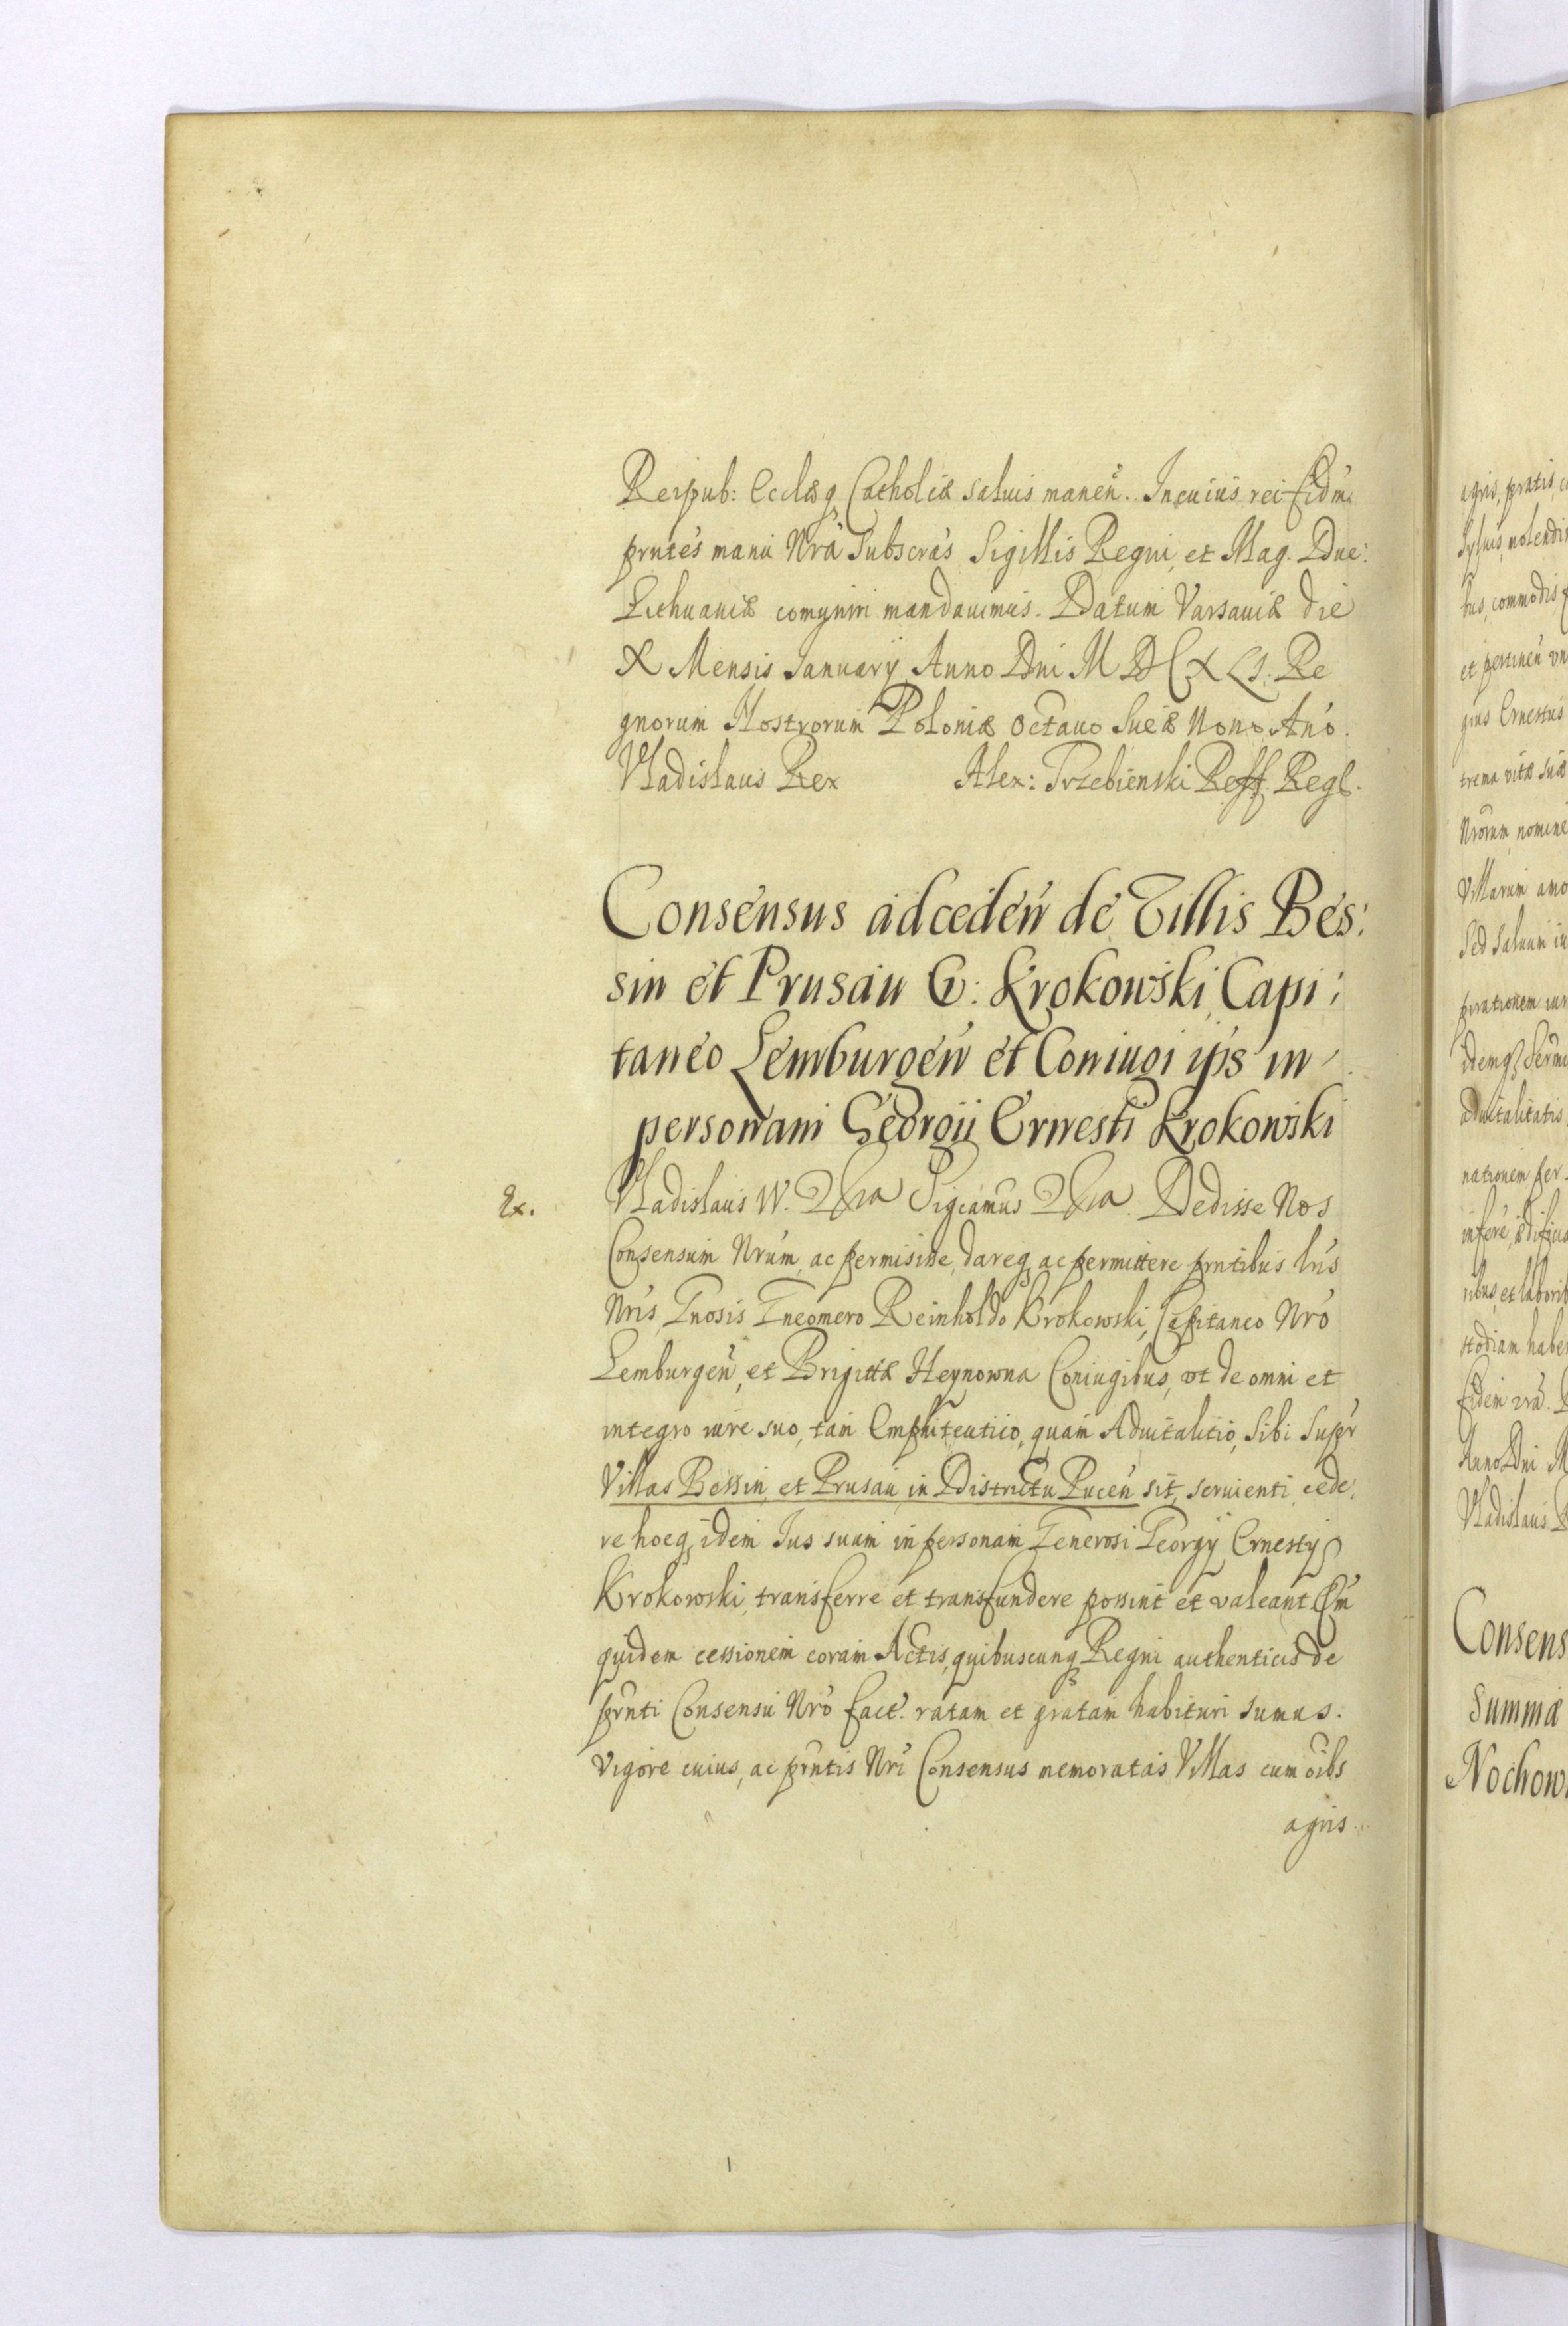 Reipub: Ecclæq Catholicæ saluis manen̄. In cuius rei fidm̄
prnt̄es manu Nrā Subscrās Sigillis Regni, et Mag. Duc:
Lithuaniæ comuniri mandauimus. Datum Varsauiæ die
X Mensis Ianuarij Anno Dni M D C X L I. Re
gnorum Nostrorum Poloniæ octauo Sueciæ Nono Año.
Vladislaus Rex Alex: Trzebienski Reff. Regℓ.
Consensus ad ceden̄ de Villis Bes:
sin et Prusau G: Krokowski Capi:
taneo Lemburgen̄ et Coniugi ips̄ in
personam Georgii Ernesti Krokowski
Ex.
Vladislaus IV. Sigcamus Dedisse Nos
Consensum Nrum̄, ac permisisse, dareq ac permittere prntibus l̄ris
Nris, Gnosis Gneomero Reinholdo Krokowski, Capitaneo Nrō
Lemburgen̄, et Brigittæ Heynowna Coniugibus, vt de omni et
integro iure suo, tam Emphiteutico, quam Aduitalitio, Sibi Supr
Villas Bessin, et Prusau, in Districtu Pucen̄ sit, seruienti, cede,
re hocq idem Ius suam in personam Generosi Georgij Ernestij
Krokowski, transferre et transfundere possint et valeant. Qm̄
quidem cessionem coram Actis, quibuscunq Regni authenticis de
prnti Consensu Nrō fact. ratam et gratam habituri sumus.
Vigore cuius, ac prntis Nri Consensus memoratas Villas cum oibs
agris
agris, pratis,
et pertinen̄
gius Ernestus
trema vitæ suæ
Nrorum, nomine
Villarum
Sed saluum
aduitalitatis
nationem
et
Anno Dni M
Vladislaus
Consens
Summæ